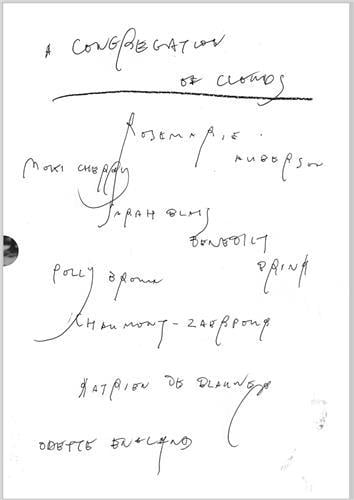 A CONGREGATION
OF CLOUDS
ROSEMARIE
AUBERSON
MOKI CHERRY
SARAH BLAIS
BENEDICT
BRINK
POLLY BROWN
CHAUMONT-ZAERPOUR
KATRIEN DE BLAUWER
ODETTE ENGLAND